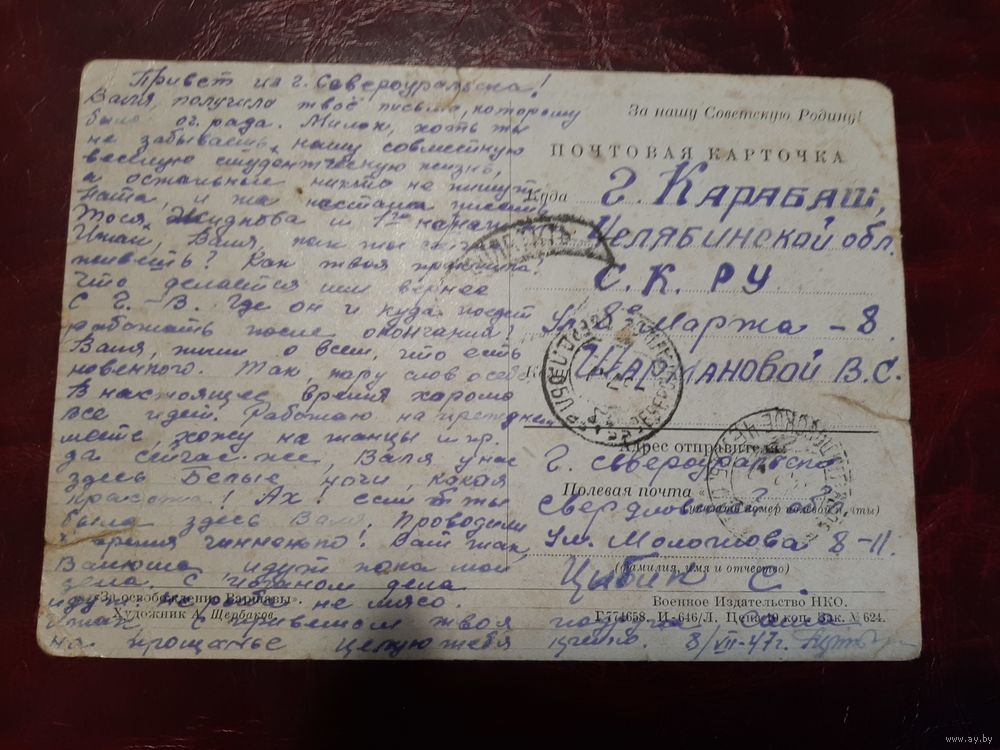 Привет из г. Североуральска!
Валя, получила твоё письмо, которому
была оч. рада. Милок, хоть ты
не забываешь нашу совместную
весёлую студенческую жизнь,
а остальные никто не пишут
Ната, и та перестала писать
Тося Жиднова и
Итак, Валя, как ты
живёшь? Как твоя
Что делается или вернее
с Г.-В. Где он и куда поедет
работать после окончания?
Валя, пиши о всем, что есть
новенького. Так, пару слов о себе.
В настоящее время хорошо
все идет. Работаю на прежнем
месте, хожу на танцы и пр.
да сейчас же, Валя у нас
здесь Белые ночи, какая
красота! Ах! если б ты
была здесь Валя! Проводили
время чинненько! Вот так,
Валюша идут пока мои
дела. С дела
идут: ни рыба не мясо.
Итак, с приветом твоя
на прощанье целую тебя
8/VII-47 г.
«За освобождению Варшавы».
Художник А. Щербаков.
За нашу Советскую Родину!
ПОЧТОВАЯ КАРТОЧКА
Куда г. Карабаш,
Челябинской обл.
С.К. РУ
Ул. 8е Марта - 8
Шармановой В.С.
Адрес отправителя:
г. Североуральск
Полевая почта
Свердлов
(указать номер полевой почты)
Ул. Молотова 8-11.
(фамилия, имя и отчество)
Цыбик С.
Военное Издательство НКО.
Г774658. И-646/Л. Цена 10 коп. Зак. № 624.
www.ay.by